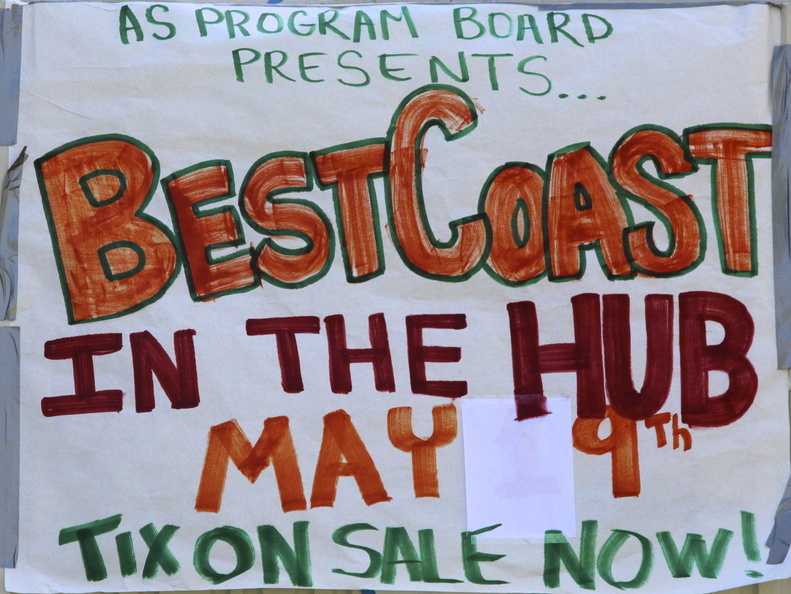 AS PROGRAM BOARD
PRESENTS...
BEST COAST
IN THE HUB
MAY 9th
TIX ON SALE NOW!